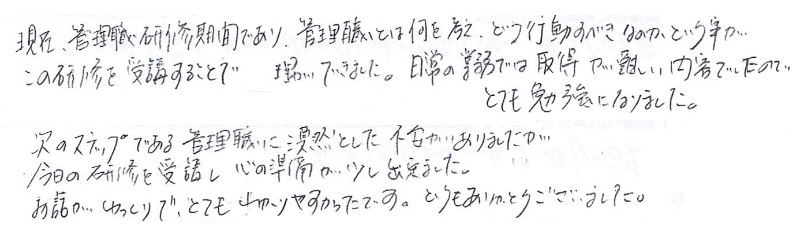 現在、管理職研修期間であり、管理職とは何を考え、どう行動すべきなのか、という事が
この研修を受講することで 理解できました。日常の業務では取得が難しい内容でしたので
とても勉強になりました。
次のステップである管理職に漠然とした不安がありましたが
今日の研修を受講し心の準備が少し出来ました。
お話がゆっくりで、とてもわかりやすかったです。どうもありがとうございました。